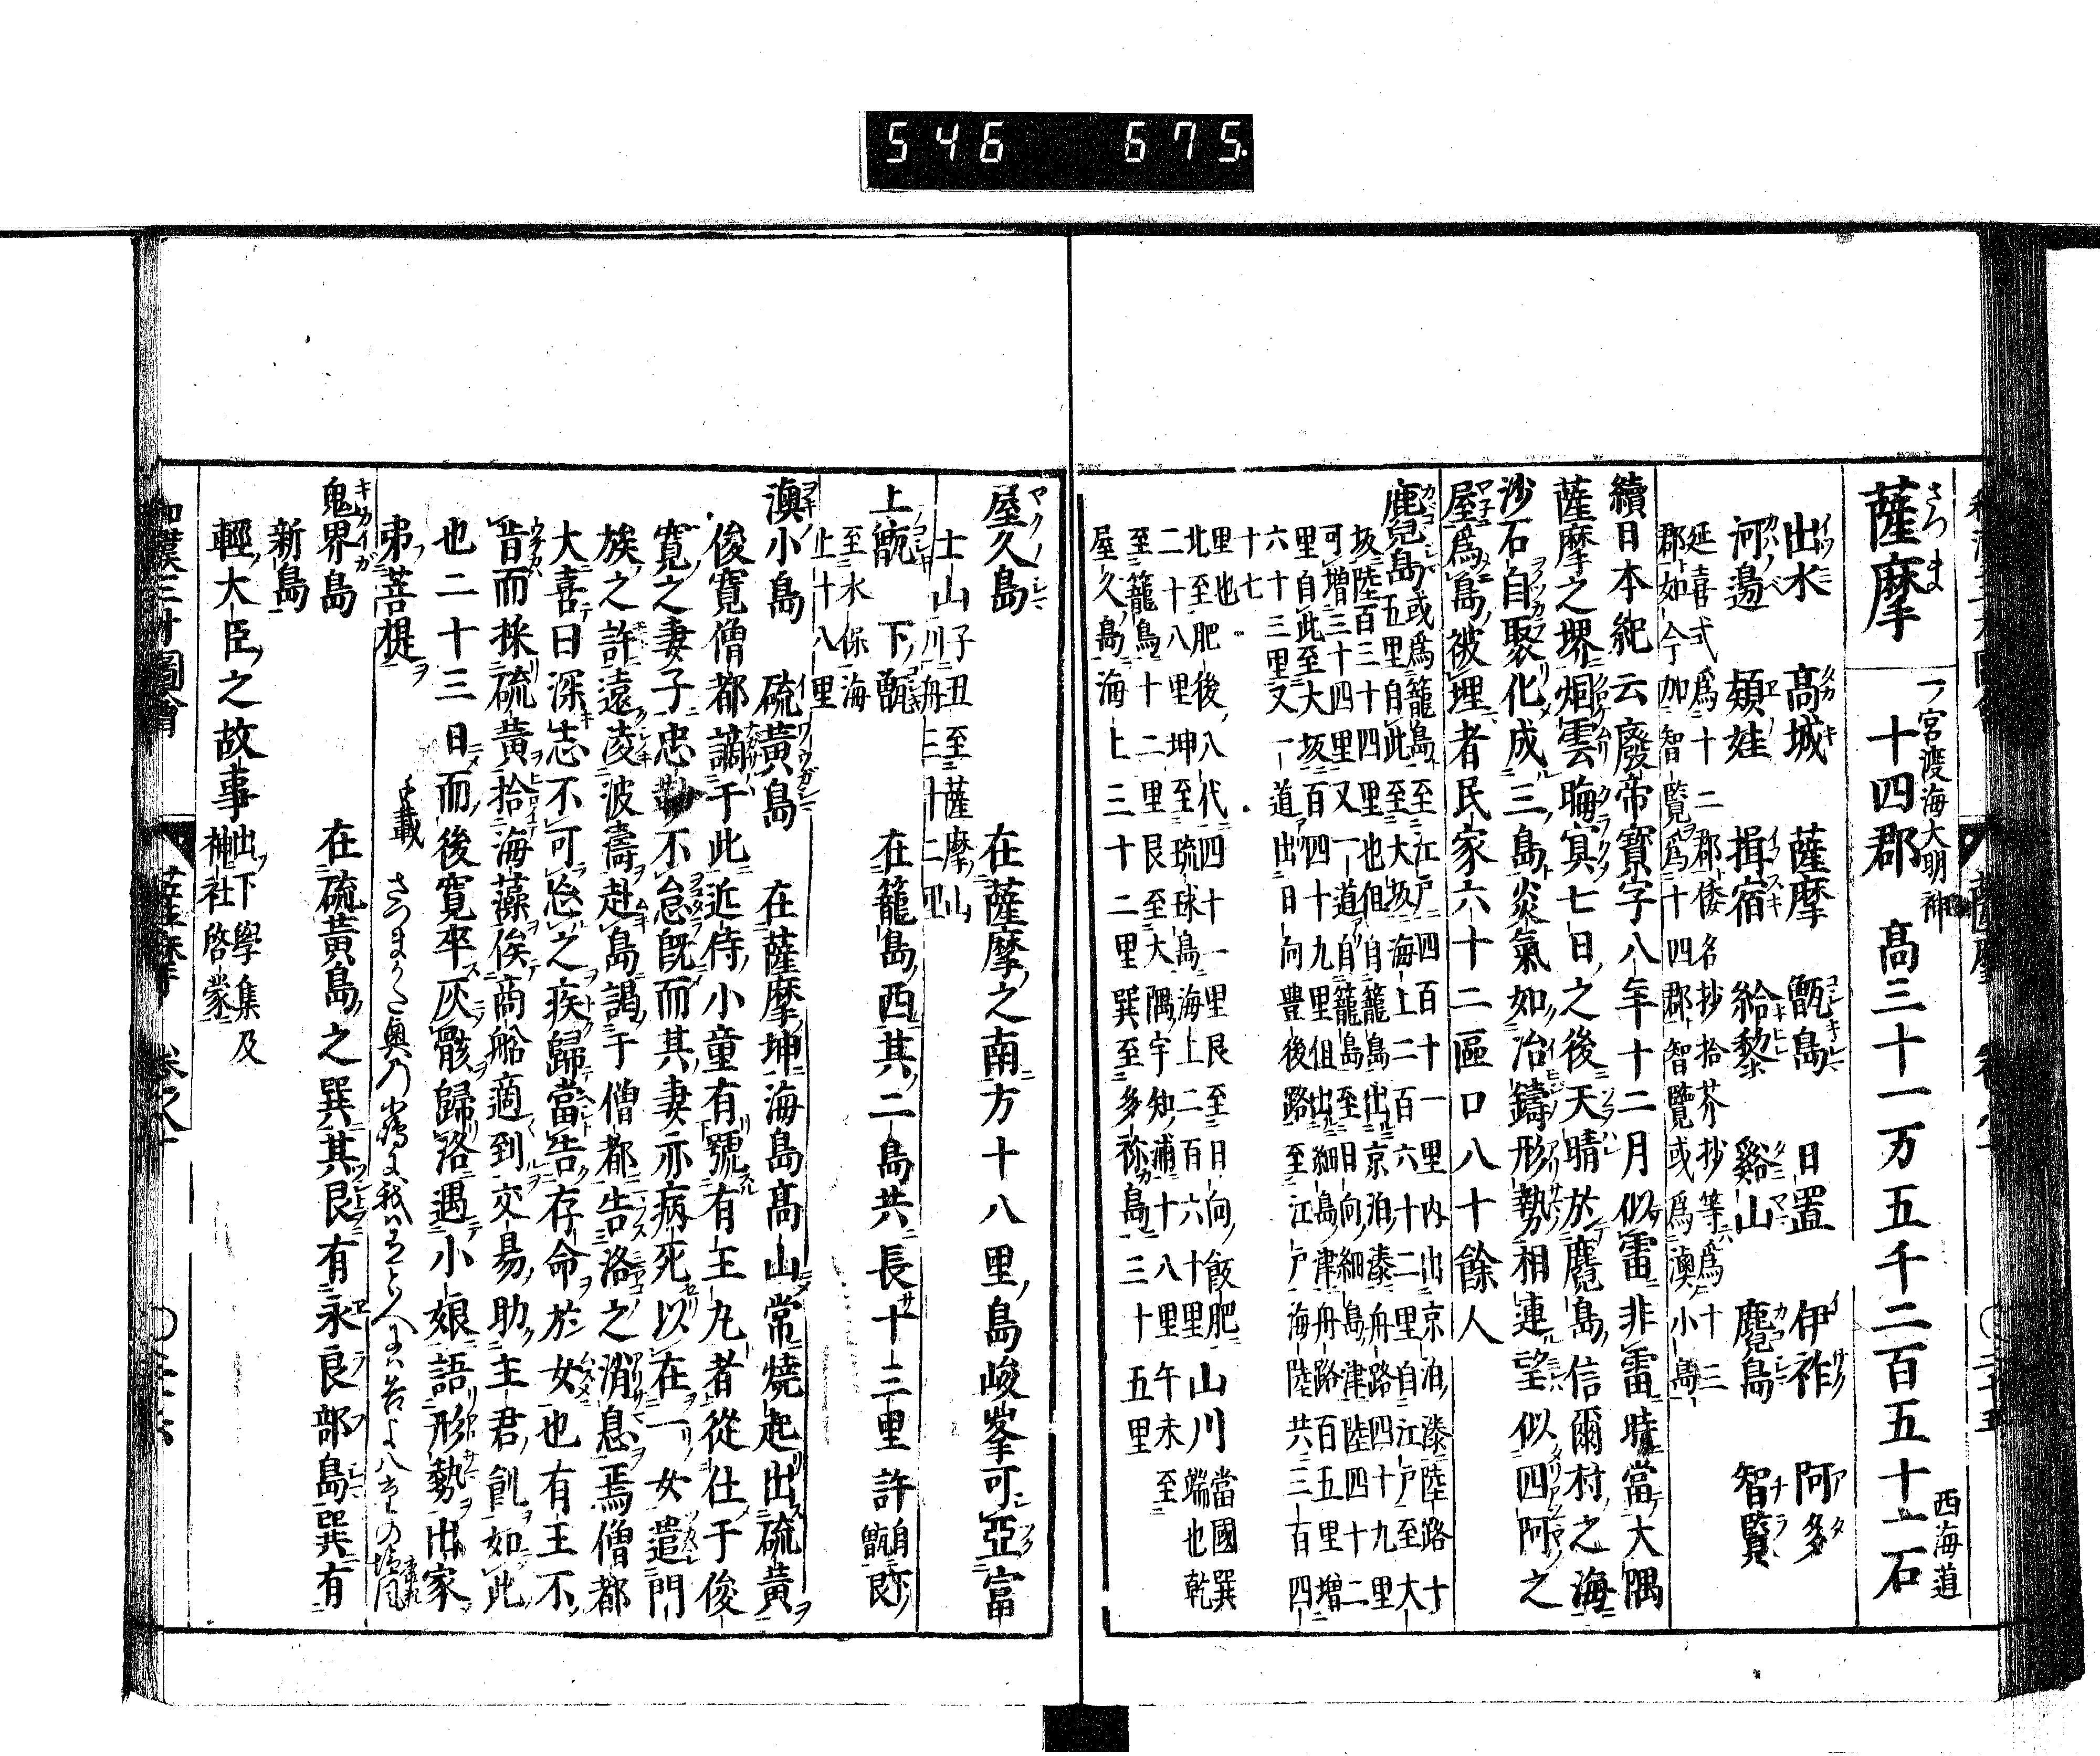 546 675.
薩摩 一宮渡海大明神 西海道
十四郡 高三十一万五千二百五十二石
出水 高城 薩摩 甑島 日置 伊祚 阿多
河邉 頴娃 揖宿 給黎 谿山 麑島 智覧
延喜式爲十二郡倭名抄拾芥抄等爲十三
郡如今加智覧爲十四郡智覽或爲澳小島
續日本紀云廢帝寶字八年十二月似雷非雷時當大隅
薩摩之堺烟雲晦冥七日之後天晴於麑島信爾村之海
沙石自聚化成三島炎氣如冶鑄形勢相連望似四阿之
屋爲島被埋者民家六十二區口八十餘人
鹿兒島或爲籠島至江戸四百十一里内出京泊湊陸路十
五里自此至大坂海上二百六十二里自江戸至大
坂陸百三十四里也但自籠島出京泊湊舟路四十九里
可増三十四里又一道自籠島至日向細島津陸四十二
里自此至大坂百四十九里但出細島津舟路百五里増
六十三里又一道出日向豊後路至江戸海陸共三百四
十七
里也 山川 當國巽
端也乾
北至肥後八代四十一里艮至日向飫肥
二十八里坤至琉球島海上二百六十里
至籠島十二里艮至大隅宇知浦十八里午未至
屋久島海上三十二里巽至多祢島三十五里
屋久島 在薩摩之南方十八里島峻峯可亞富
士山子丑至薩摩山
川舟三十二里
上甑 下甑 在籠島西其二島共長十三里許自下
甑艮
至水保海
上十八里
澳小島 硫黄島 在薩摩坤海島高山常燒起出硫黄
俊寛僧都謫于此近侍小童有號有王丸者從仕于俊
寛之妻子忠勤不怠既而其妻亦病死以在一女遣門
族之許遠凌波濤赴島謁于僧都告洛之消息焉僧都
大喜曰深志不可忘之疾歸當告存命於女也有王不
肯而採硫黄拾海藻俟商船適到交易助主君飢如此
也二十三日而後寛卒灰骸歸洛遇小娘語形勢出家
弔菩提
千載 さつまかた奥乃小嶋に我ハありと人にハ告よ八重の塩風
鬼界島 在硫黄島之巽其艮有永良部島巽有
新島
輕大臣之故事出下學集及
神社啓蒙